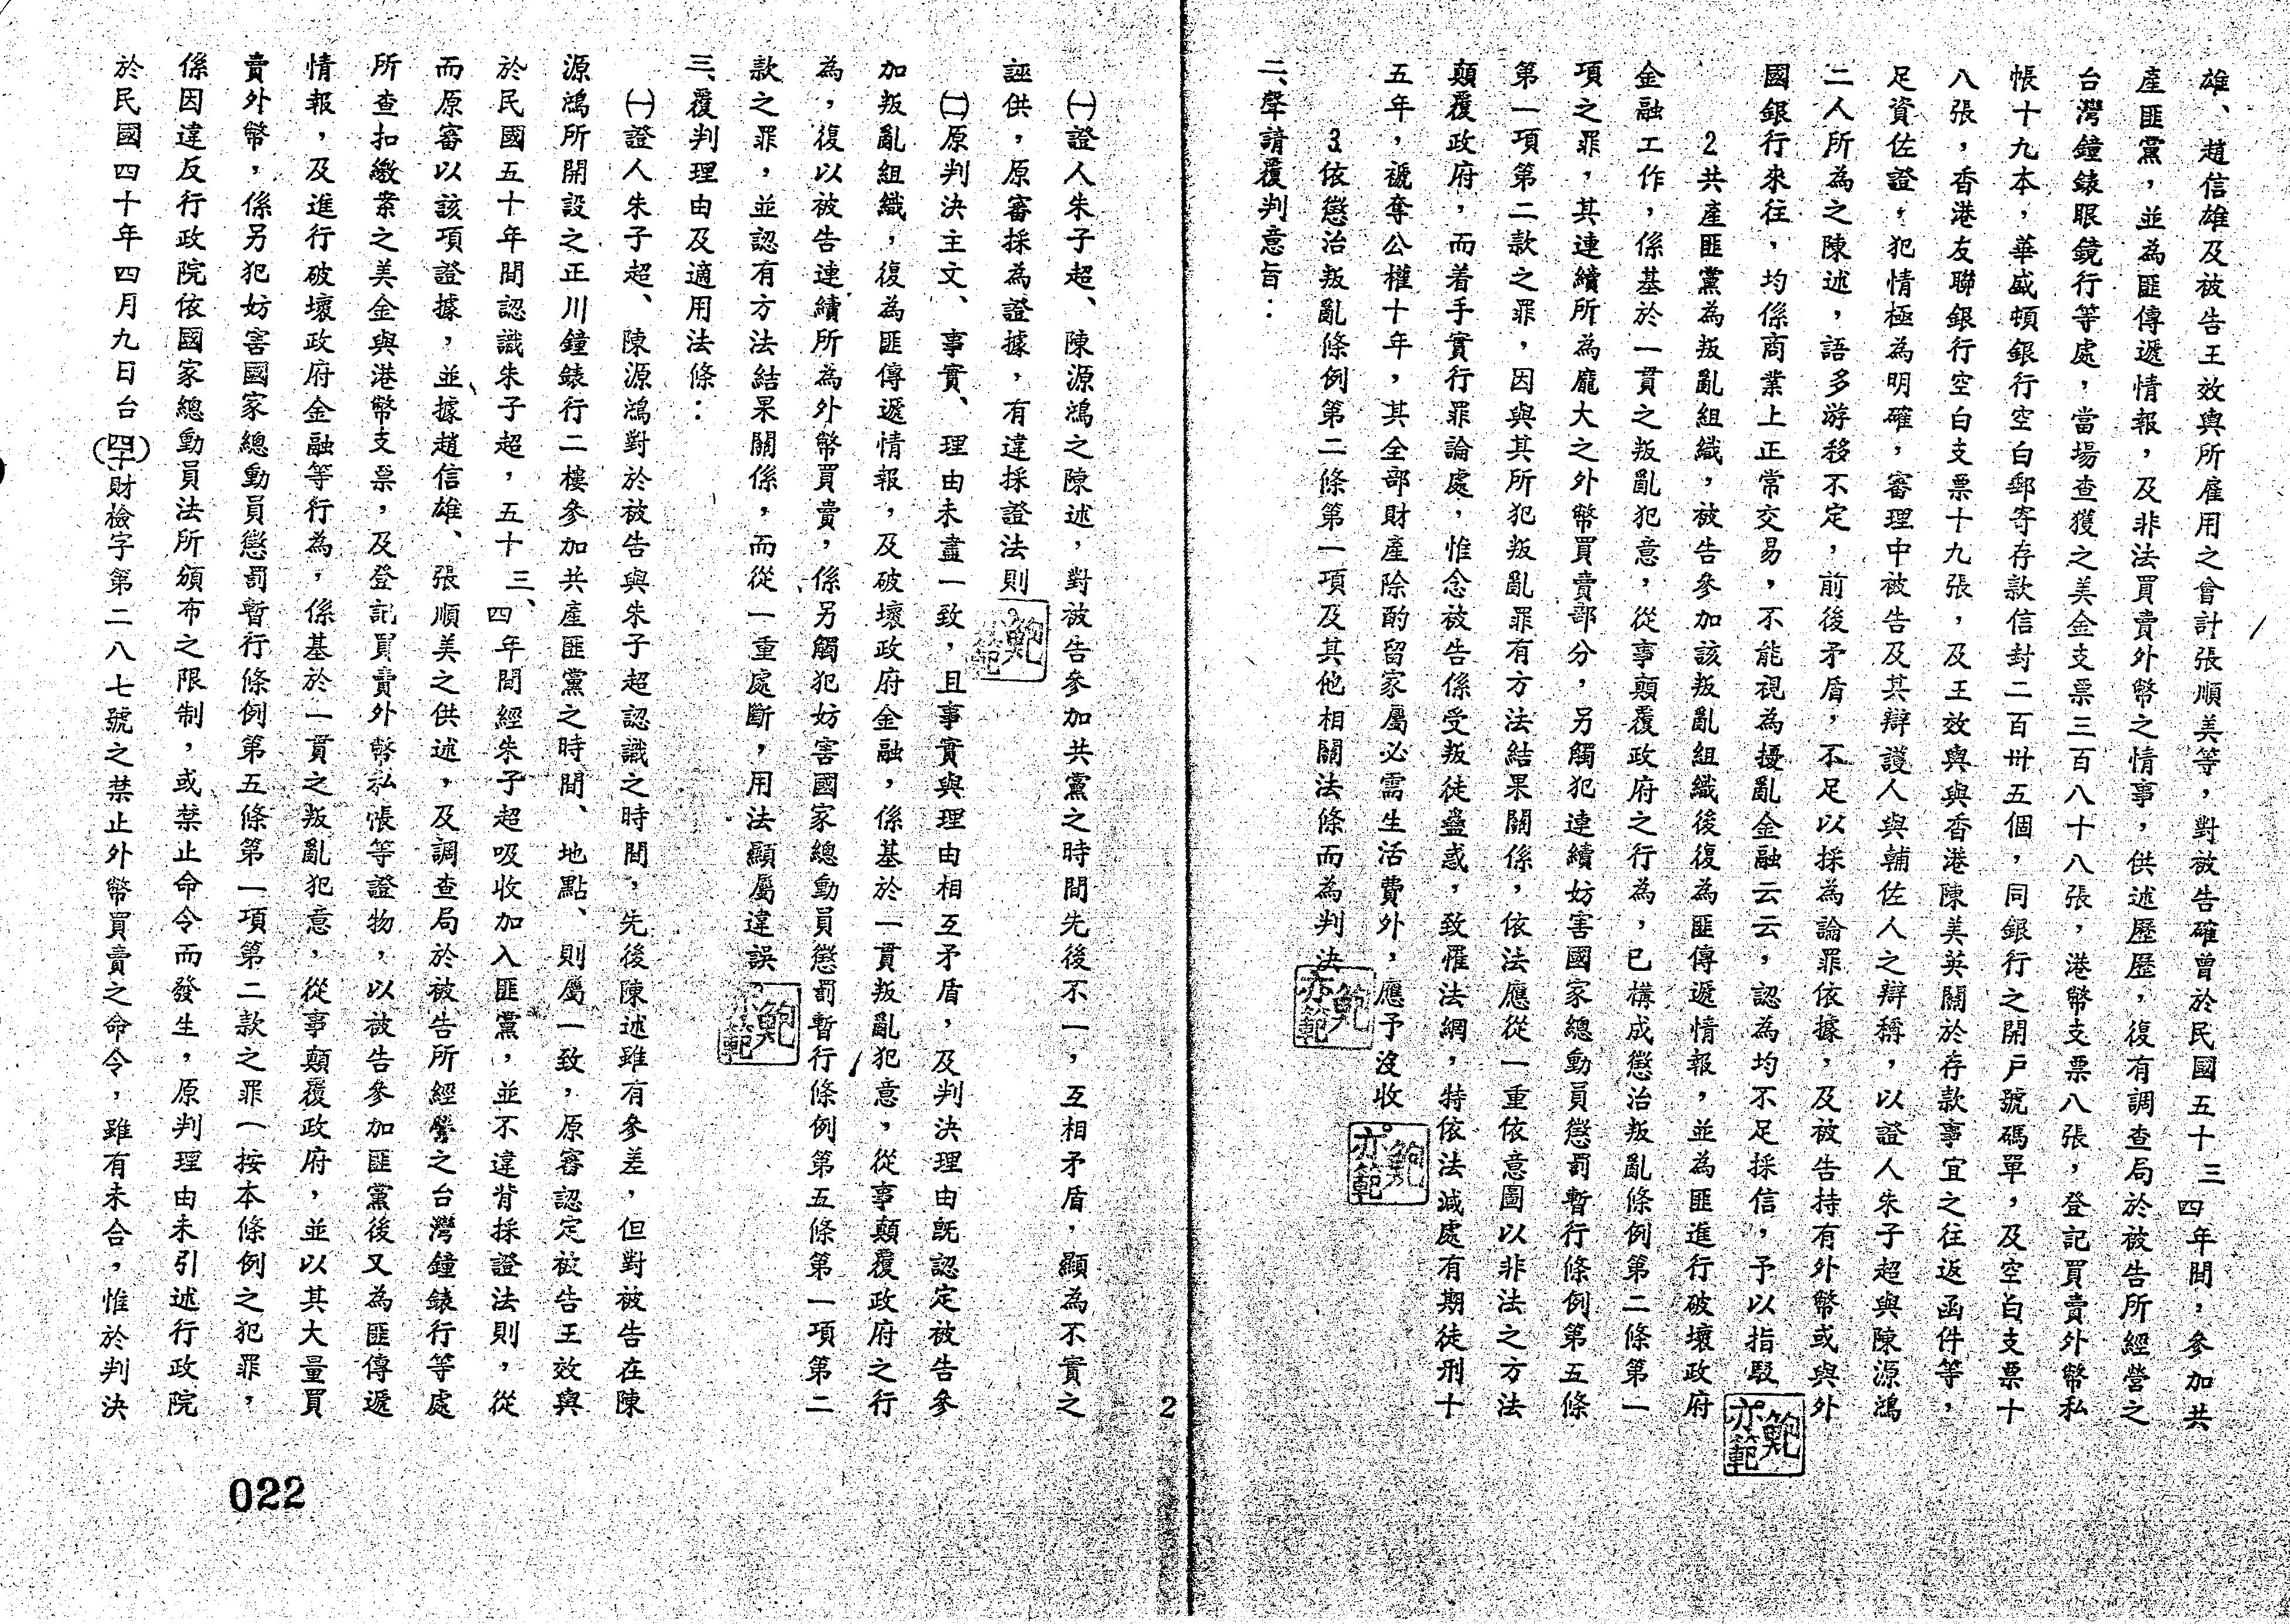 雄、趙信雄及被告王效與所雇用之會計張順美等，對被告確曾於民國五十三四年間，參加共
產匪黨，並為匪傳遞情報，及非法買賣外幣之情事，供述歷歷，復有調查局於被告所經營之
台灣鐘錶眼鏡行等處，當場查獲之美金支票三百八十八張，港幣支票八張，登記買賣外幣私
帳十九本，華威頓銀行空白郵寄存款信封二百卅五個，同銀行之開戶號碼單，及空白支票十
八張，香港友聯銀行空白支票十九張，及王效與與香港陳美英關於存款事宜之往返函件等，
足資佐證，犯情極為明確，審理中被告及其辯護人與輔佐人之辯稱，以證人朱子超與陳源鴻
二人所為之陳述，語多游移不定，前後矛盾，不足以採為論罪依據，及被告持有外幣或與外
國銀行來往，均係商業上正常交易，不能視為擾亂金融云云，認為均不足採信，予以指駁
2共產匪黨為叛亂組織，被告參加該叛亂組織後復為匪傳遞情報，並為匪進行破壞政府
金融工作，係基於一貫之叛亂犯意，從事顛覆政府之行為，已構成懲治叛亂條例第二條第一
項之罪，其連續所為龐大之外幣買賣部分，另觸犯連續妨害國家總動員懲罰暫行條例第五條
第一項第二款之罪，因與其所犯叛亂罪有方法結果關係，依法應從一重依意圖以非法之方法
顛覆政府，而着手實行罪論處，惟念被告係受叛徒蠱惑，致罹法網，特依法減處有期徒刑十
五年，褫奪公權十年，其全部財產除酌留家屬必需生活費外，應予沒收。
鮑亦範
3依懲治叛亂條例第二條第一項及其他相關法條而為判決
鮑亦範
二、聲請覆判意旨：
2
㈠證人朱子超、陳源鴻之陳述，對被告參加共黨之時間先後不一，互相矛盾，顯為不實之
誣供，原審採為證據，有違採證法則。
㈡原判決主文、事實、理由未盡一致，且事實與理由相互矛盾，及判決理由既認定被告參
加叛亂組織，復為匪傳遞情報，及破壞政府金融，係基於一貫叛亂犯意，從事顛覆政府之行
為，復以被告連續所為外幣買賣，係另觸犯妨害國家總動員懲罰暫行條例第五條第一項第二
款之罪，並認有方法結果關係，而從一重處斷，用法顯屬違誤。
三、覆判理由及適用法條：
㈠證人朱子超、陳源鴻對於被告與朱子超認識之時間，先後陳述雖有參差，但對被告在陳
源鴻所開設之正川鐘錶行二樓參加共產匪黨之時間、地點、則屬一致，原審認定被告王效與
於民國五十年間認識朱子超，五十三、四年間經朱子超吸收加入匪黨，並不違背採證法則，從
而原審以該項證據，並據趙信雄、張順美之供述，及調查局於被告所經營之台灣鐘錶行等處
所查扣繳案之美金與港幣支票，及登記買賣外幣私帳等證物，以被告參加匪黨後又為匪傳遞
情報，及進行破壞政府金融等行為，係基於一貫之叛亂犯意，從事顛覆政府，並以其大量買
賣外幣，係另犯妨害國家總動員懲罰暫行條例第五條第一項第二款之罪一按本條例之犯罪，
係因違反行政院依國家總動員法所頒布之限制，或禁止命令而發生，原判理由未引述行政院
於民國四十年四月九日台(四十)財檢字第二八七號之禁止外幣買賣之命令，雖有未合，惟於判決
022